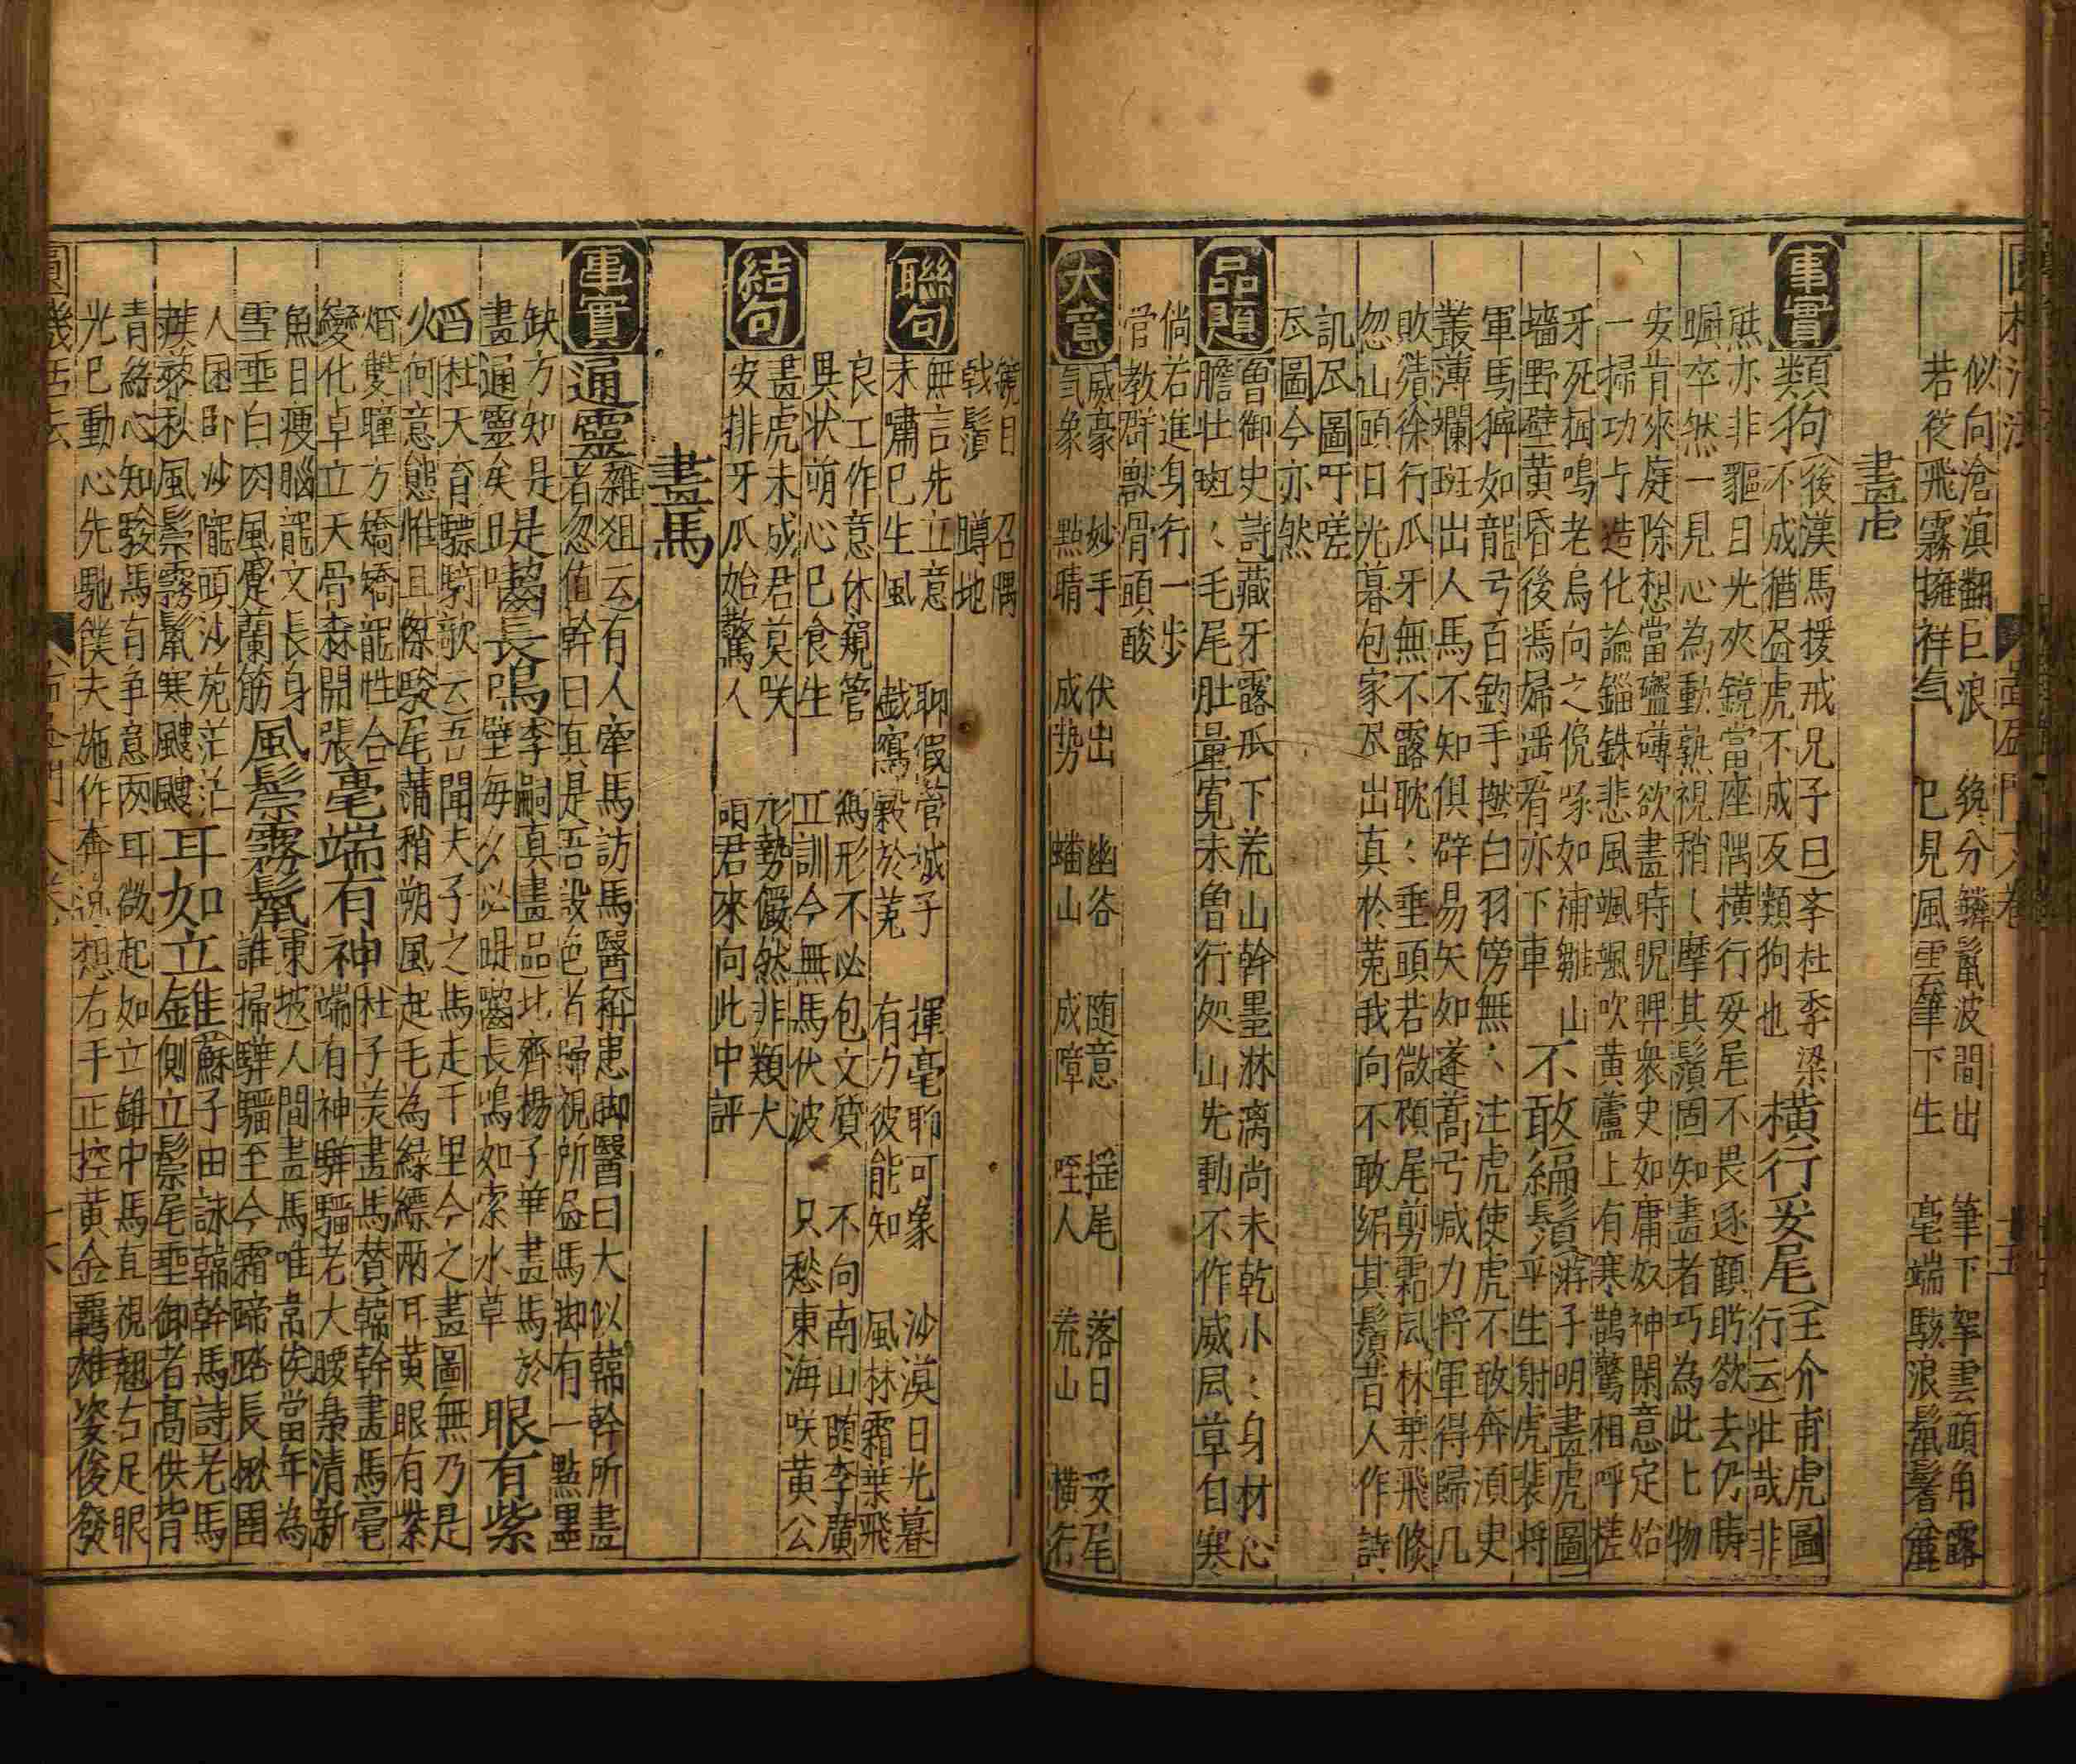 似向滄溟翻巨浪　絶分鱗鬣波間出　筆下挐雲頭角露
若從飛霧擁祥气　已見風雲筆下生　毫端駭浪鬣鬐
畫虎
事實
類狗
後漢馬援戒兄子曰李杜季梁
不成猶盆虎不成反類狗也
橫行妥尾
王介甫虎圖
行云壮哉非
熊亦非貙日光夾鏡當座隅橫行妥尾不畏逐顧盻欲去仍躊
蹰卒然一見心為動熟視稍〻摩其鬚固知畫者巧為此此物
安肯來庭除想當盤礴欲畫時睨睥衆史如庸奴神閑意定始
一掃功与造化論錙銖悲風颯颯吹黄蘆上有寒鵲驚相呼槎
牙死樹鳴老烏向之俛啄如哺雛山
墻野壁黄昏後馮婦遥看亦下車
不敢編鬚
游子明畫虎圖
平生射虎裴將
軍馬獰如龍弓百鈞手撚白羽傍無〻注虎使虎不敢奔須史
叢薄斕斑出人馬不知俱辟易矢如蓬蒿弓减力将軍得歸几
敗績徐行爪牙無不露耽〻垂頭若微頓尾剪霜風林葉飛倐
忽山頭日光暮包家尽出真於菟我向不敢編其鬚昔人作詩
訊尽圖吁嗟
尽圖今亦然
品題
魯御史詩藏牙露爪下荒山幹墨淋离尚未乾小〻身材心
膽壮斑〻毛尾肚量寛未曽行処山先動不作威風草自寒
倘若進身行一步
管教群獸骨頭酸
大意
威豪　妙手　伏出　幽谷　随意　揺尾　落日　妥尾
気象　點睛　成勢　蟠山　成障　咥人　荒山　橫行
鏡目　召隅
戟鬚　蹲地
聯句
無言先立意　聊假管城子　揮毫聊可象　沙漠日光暮
未嘯已生風　戯寫穀於菟　有力彼能知　風林霜葉飛
結句
良工作意休窺管　為形不必包文質　不向南山随李廣
異状萌心已食生　正訓今無馬伏波　只愁東海咲黄公
畫虎未成君莫咲　形勢儼然非類犬
安排牙爪始驚人　頭君來向此中評
畫馬
事實
通靈
雜俎云有人牽馬訪馬醫稱患脚醫曰大似韓幹所畫
者忽值幹曰真是吾設色者歸視所畫馬脚有一點墨
缺方知是
畫通靈矣
是齧長鳴
李嗣真畫品比齊楊子華畫馬於
壁每夜必聞齧長鳴如索水草
眼有紫
杜天育驃騎歌云吾聞夫子之馬走千里今之畫圖無乃是
火何意態雄且傑駿尾蕭稍朔風起毛為緑縹兩耳黄眼有紫
焰雙瞳方矯矯龍性合
變化卓立天骨森開張
毫端有神
杜子美畫馬賛韓幹畫馬毫
端有神驊騮老大腰裊清新
魚目痩腦龍文長身
雪垂白肉風蹙蘭筋
風鬃霧鬣
東坡人間畫馬唯韋侯當年為
誰掃驊騮至今霜蹄踏長楸圉
人困卧沙隴頭沙苑茫茫
蒺藜秋風鬃霧鬣寒颼颼
耳如立錐
蘇子由詠韓幹馬詩老馬
側立鬃尾垂御者高供背
青絲心知駿馬有争意两耳微起如立錐中馬直視翹右足眼
光已動心先馳僕夫施作奔逸想右手正控黄金羈雄姿俊發